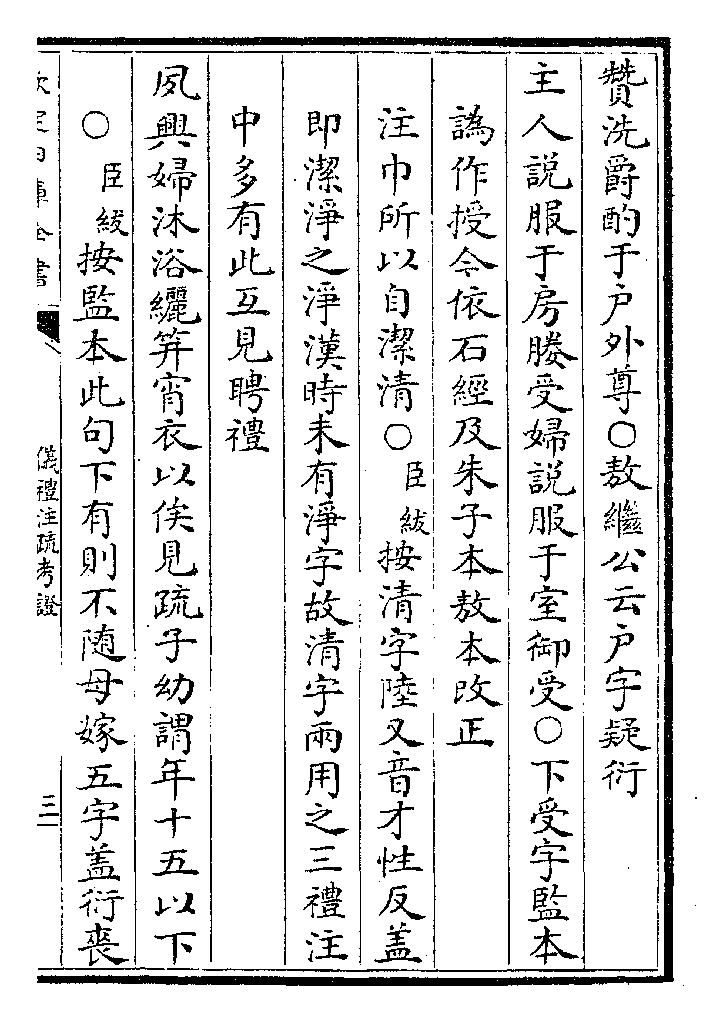 贊洗爵酌于户外尊○敖繼公云户字疑衍
主人說服于房媵受婦說服于室御受○下受字監本
譌作授今依石經及朱子本敖本改正
注巾所以自潔清○臣紱按清字陸又音才性反盖
即潔淨之淨漢時未有淨字故清字兩用之三禮注
中多有此互見聘禮
夙興婦沐浴纚笄宵衣以俟見疏子幼謂年十五以下
○臣紱按監本此句下有則不随母嫁五字盖衍喪
欽定四庫全書
儀禮注疏考證
三